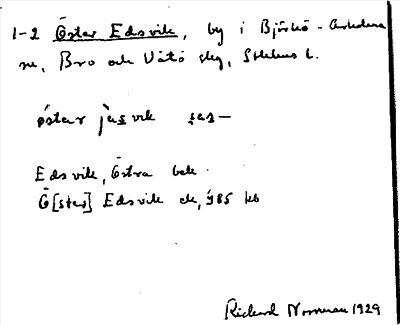 1-2 Öster Edsvik, by i Björkö-Arholma
sn, Bro och Vätö slg, Sthlms l.
östar jàsvik sas—
Edsvik, Östra bek.
Ö[ster] Edsvik ek, 985 kb
Rickard Norrman 1929